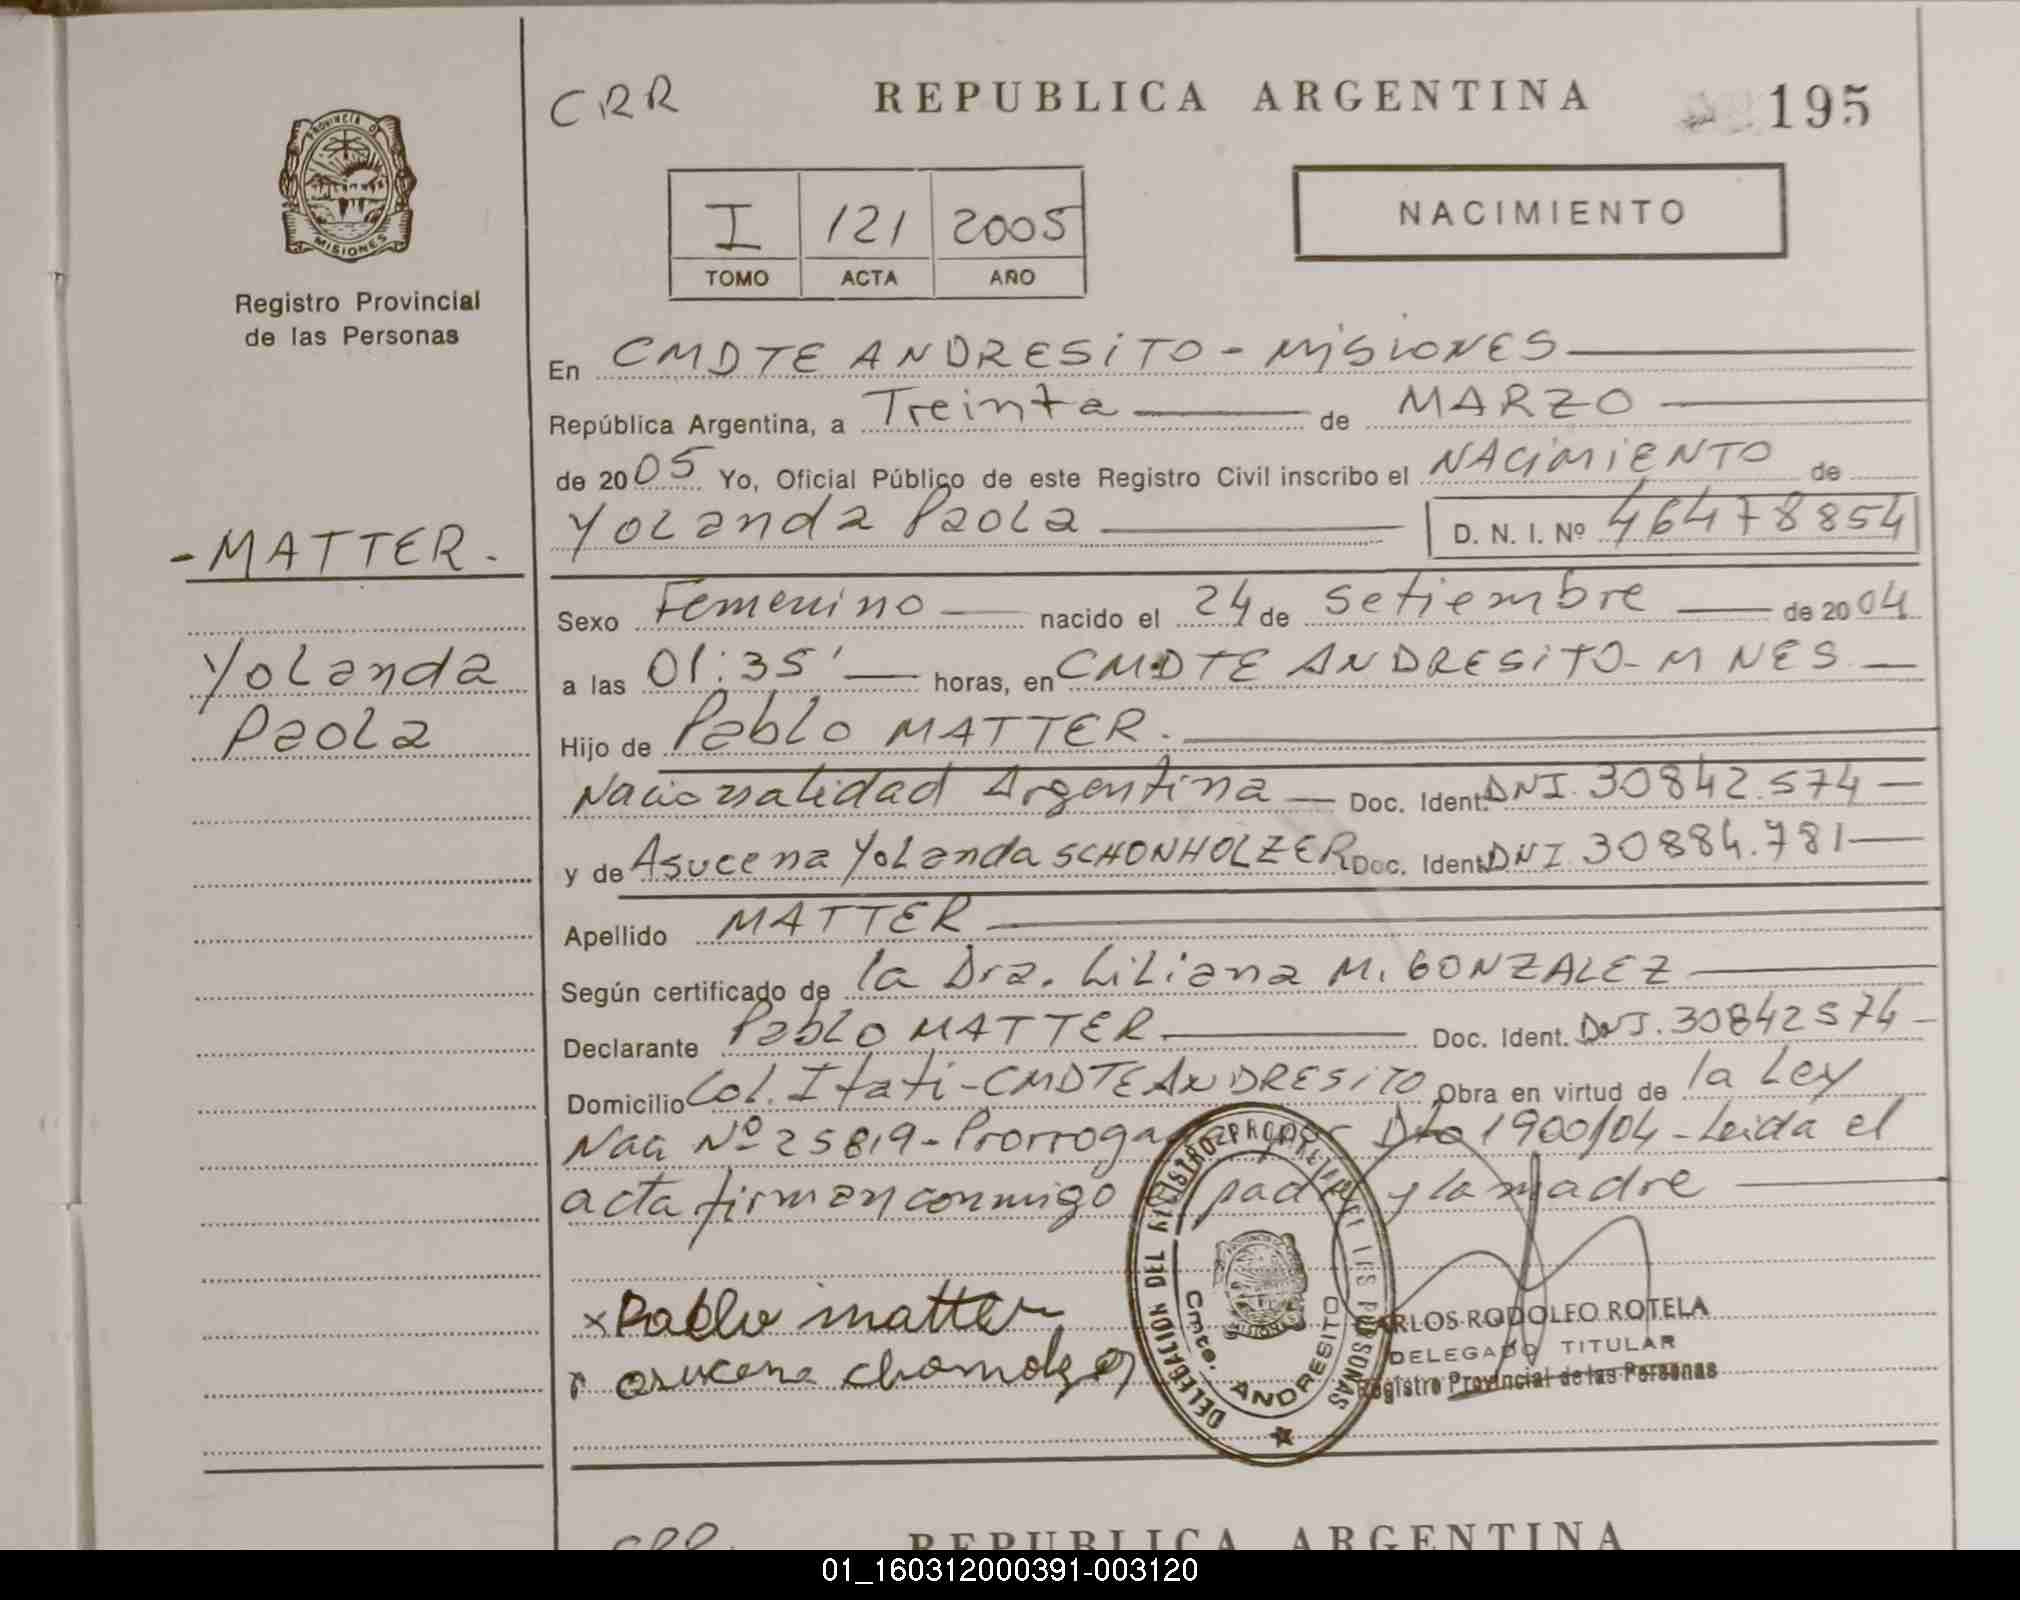 CRR
REPUBLICA ARGENTINA
195
PROVINCIA DE
MISIONES
Registro Provincial
de las Personas
I 121 2005
TOMO ACTA AÑO
NACIMIENTO
En CMDTE ANDRESITO - MISIONES
República Argentina, a Treinta de MARZO
de 2005 Yo, Oficial Público de este Registro Civil inscribo el NACIMIENTO de
Yolanda Paola D. N. I. Nº 46478854
- MATTER -
Yolanda
Paola
Sexo Femenino nacido el 24 de Setiembre de 2004
a las 01:35' horas, en CMDTE ANDRESITO - MNES
Hijo de Pablo MATTER.
Nacionalidad Argentina Doc. Ident. DNI. 30842.574
y de Asucena Yolanda SCHONHOLZER Doc. Ident. DNI 30884.781
Apellido MATTER
Según certificado de la Dra. Liliana M. GONZALEZ
Declarante Pablo MATTER Doc. Ident. DNI. 30842574
Domicilio Col. Itati - CMDTE ANDRESITO Obra en virtud de la Ley
Nac. Nº 25819 - Prorroga por Dto 1900/04 - Leida el
acta firman conmigo padre y la madre
x Pablo matter
asucena
DELEGACION DEL REGISTRO PROVINCIAL DE LAS PERSONAS
Cmte. ANDRESITO
CARLOS RODOLFO ROTELA
DELEGADO TITULAR
Registro Provincial de las Personas
REPUBLICA ARGENTINA
01_160312000391-003120